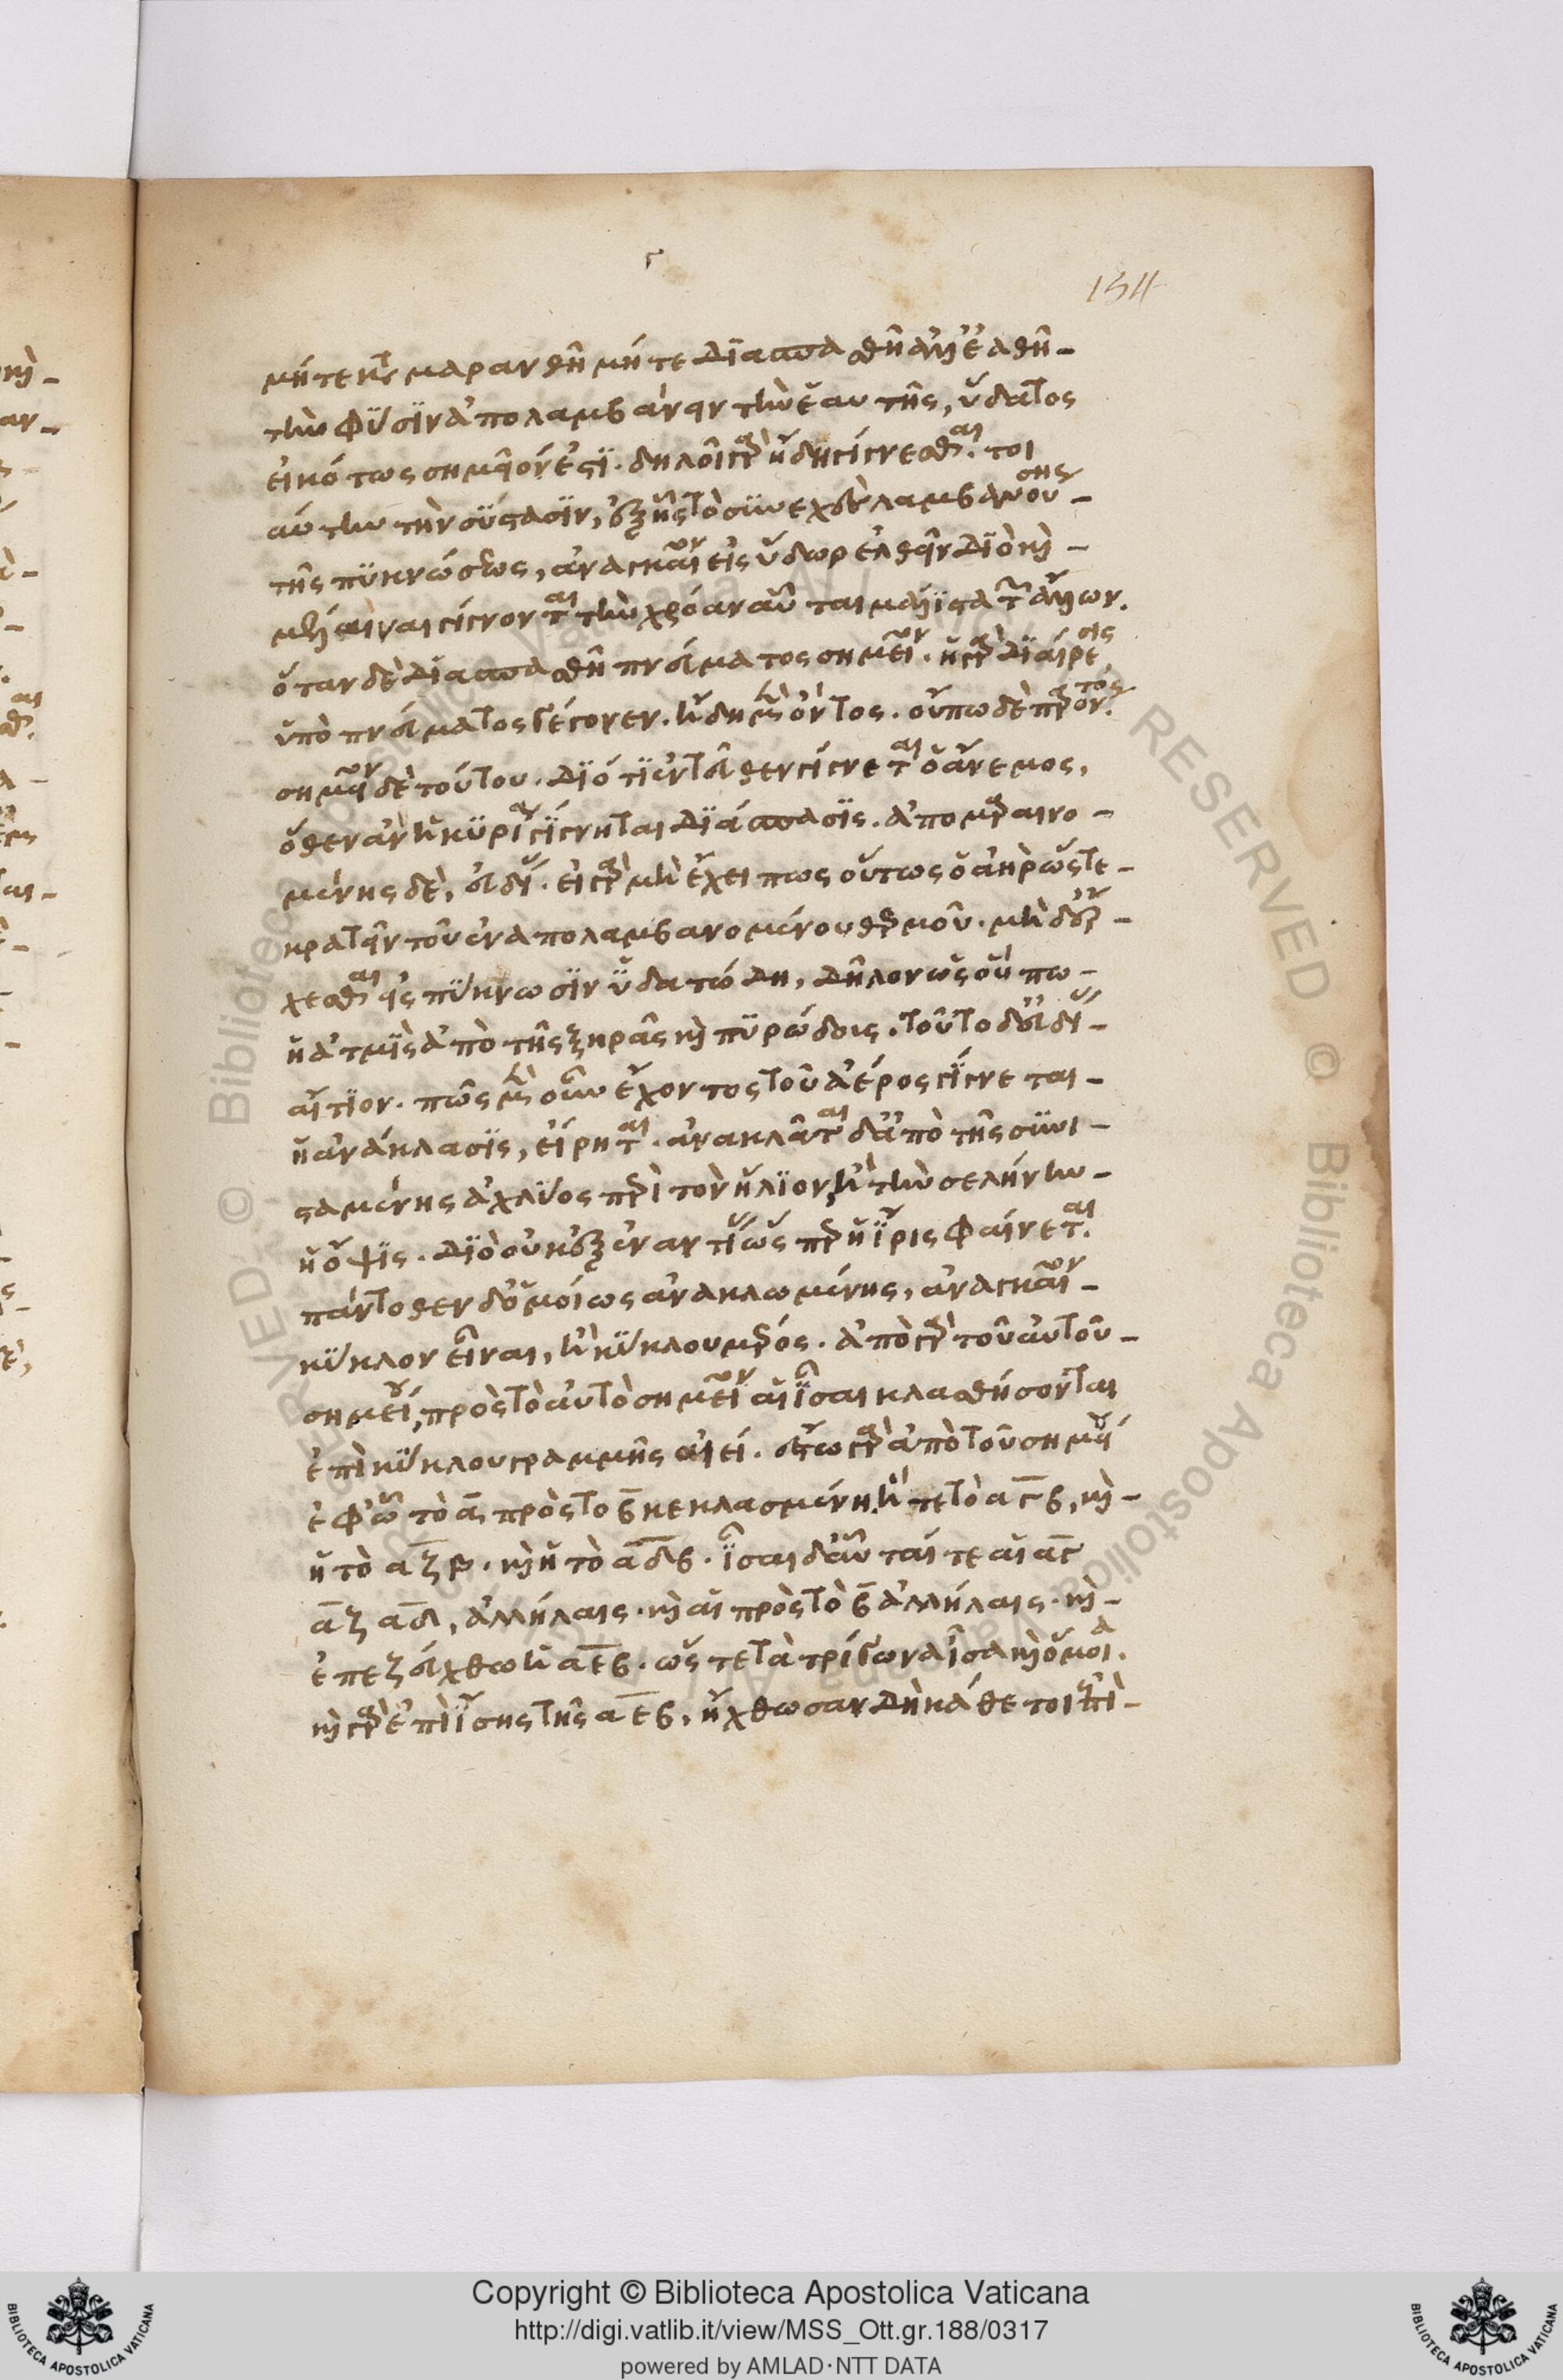 154
μήτε καταμαρανθῆ μήτε διασπασθῆ ἀλλ' ἐαθῆ
τὴν φύσιν ἀπολαμβάνειν τὴν ἑαυτῆς, ὕδατος
εἰκότως σημεῖον ἐστί. δηλοῖ γὰρ ἤδη γίγνεσθαι τοι
αύτην τὴν σύστασιν, ἐξ ἧς τὸ συνεχὲς λαμβανούσης
τῆς πυκνώσεως, ἀναγκαῖον εἰς ὕδωρ ἐλθεῖν διὸ καὶ
μέλαιναι γίγνονται τὴν χρόαν αὗται μάλιστα τῶν ἄλλων.
ὅταν δὲ διασπασθῆ πνεύματος σημεῖον. ἡ γὰρ διαίρεσις
ὑπὸ πνεύματος γέγονεν. ἤδη μὲν ὄντος. οὔπω δὲ παρόντος.
σημεῖον δὲ τούτου. διότι ἐντεῦθεν γίγνεται ὁ ἄνεμος,
ὅθεν ἂν ἡ κυρία γίγνηται διάσπασις. ἀπομαραινο
μένης δὲ, εὐδίας. εἰ γὰρ μὴ ἔχει πως οὕτως ὁ ἀὴρ ὥστε
κρατεῖν τοῦ ἐναπολαμβανομένου θερμοῦ. μὴ δ' ἔρ
χεσθαι εἰς πύκνωσιν ὑδατώδη, δῆλον ὡς οὔπω
ἡ ἀτμὶς ἀπὸ τῆς ξηρᾶς καὶ πυρώδους. τοῦτο δ' εὐδίας
αἴτιον. πῶς μὲν οὖν ἔχοντος τοῦ ἀέρος γίγνεται
ἡ ἀνάκλασις, εἴρηται. ἀνακλᾶται δ' ἀπὸ τῆς συνι
σταμένης ἀχλύος περὶ τὸν ἥλιον, ἢ τὴν σελήνην
ἡ ὄψις. διὸ οὐκ ἐξ ἐναντίας ὥσπερ ἡ ἶρις φαίνεται.
πάντοθεν δ' ὁμοίως ἀνακλωμένης, ἀναγκαῖον
κύκλον εἶναι, ἢ κύκλου μέρος. ἀπὸ γὰρ τοῦ αὐτοῦ
σημείου, πρὸς τὸ αὐτὸ σημεῖον αἱ ἴσαι κλασθήσονται
ἐπὶ κύκλου γραμμῆς ἀεί. ἔστω γὰρ ἀπὸ τοῦ σημείου
ἐφ' ᾧ τὸ α, πρὸς τὸ β κεκλασμένη ἥτε τὸ αγβ, καὶ
ἡ τὸ αζβ. καὶ ἡ τὸ αδβ. ἴσαι δ' αὗταί τε αἱ αγ
αζ αδ, ἀλλήλαις. καὶ αἱ πρὸς τὸ β ἀλλήλαις. καὶ
ἐπεζεύχθω ἡ αεβ. ὥστε τὰ τρίγωνα ἴσα καὶ ὅμοια.
καὶ γὰρ ἐπὶ ἴσης τῆς αεβ, ἤχθωσαν δὴ κάθετοι ἐπὶ
Copyright © Biblioteca Apostolica Vaticana
http://digi.vatlib.it/view/MSS_Ott.gr.188/0317
powered by AMLAD·NTT DATA